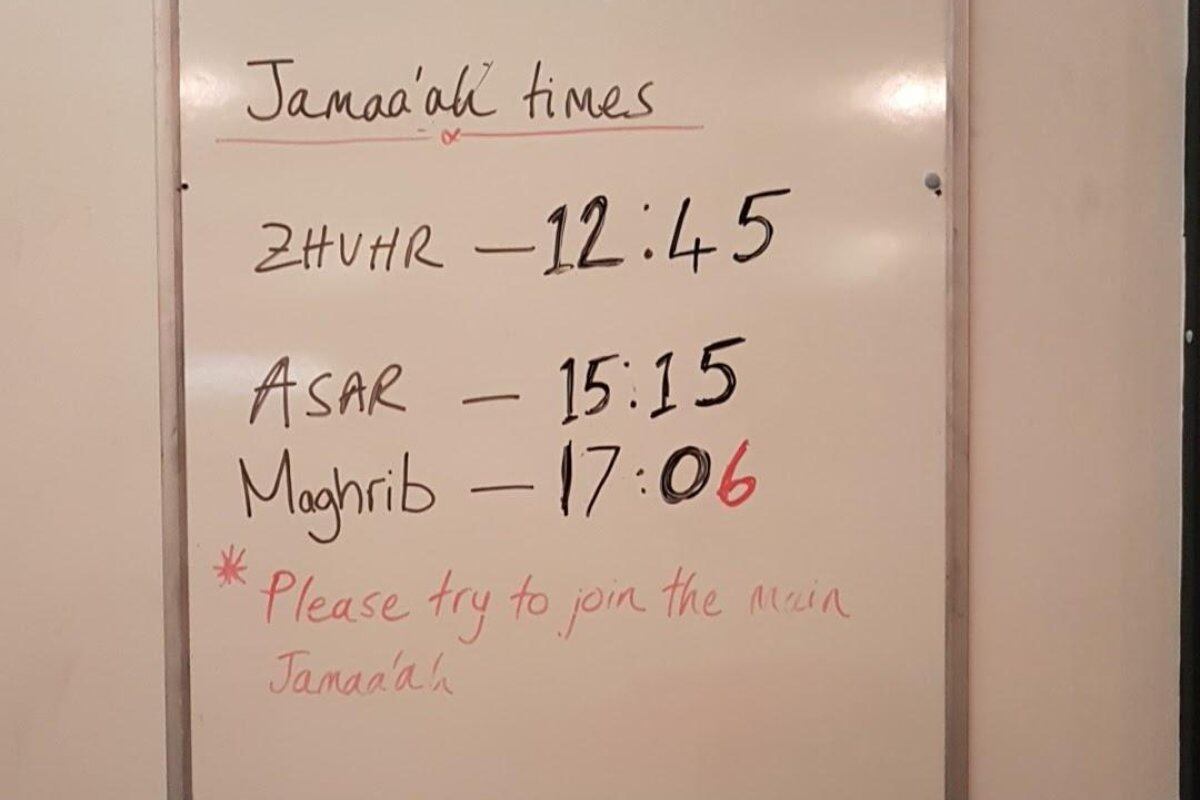 Jamaa'ah times
ZHUHR — 12:45
ASAR — 15:15
Maghrib — 17:06
* Please try to join the main
Jamaa'ah